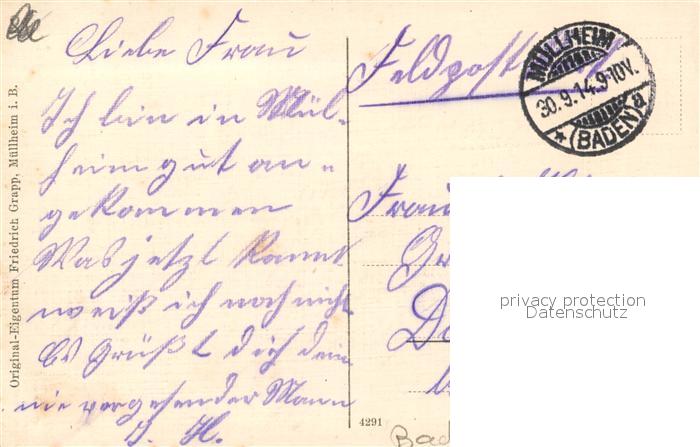 Liebe Frau
Ich bin in Mül-
heim gut an-
gekommen
Was jetzt kommt
weiß ich noch nicht
Es Grüßt dich dein
nie vergesender Mann
J. H.
Feldpost
MÜLLHEIM
30.9.14.9-10V.
* (BADEN) a
Frau
privacy protection
Datenschutz
4291
Bad
Original-Eigentum Friedrich Grapp, Müllheim i. B.